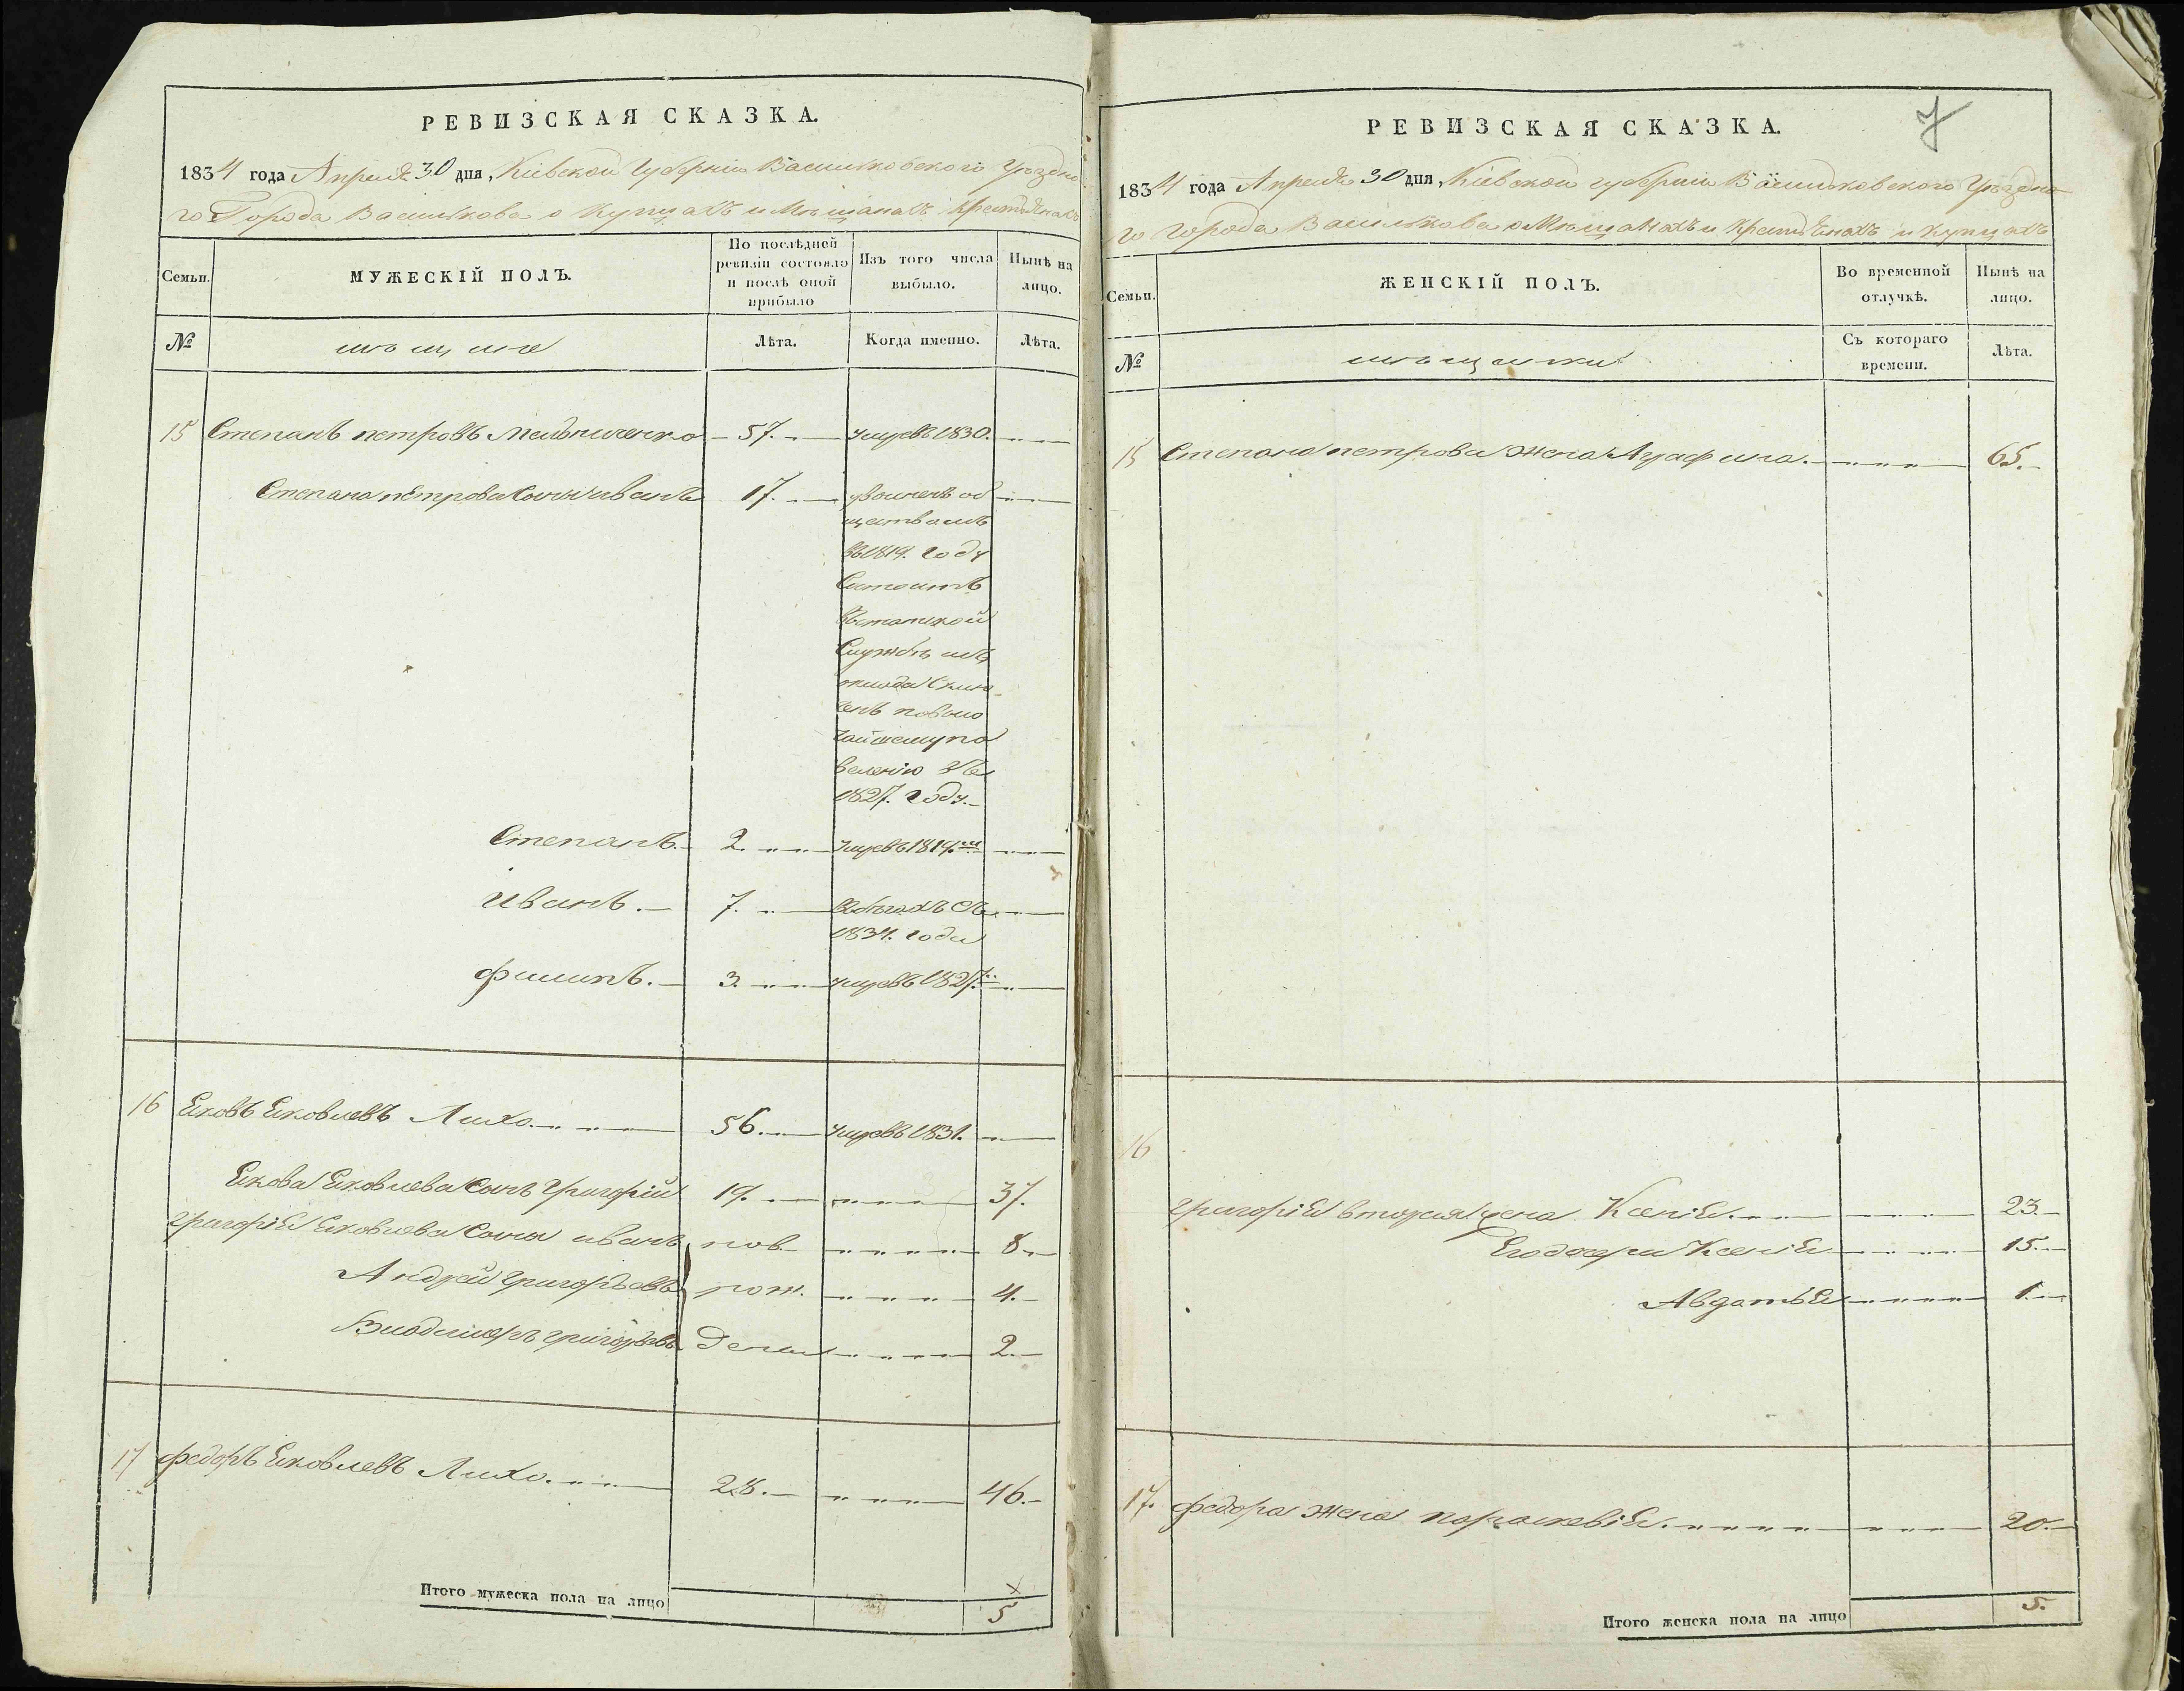 РЕВИЗСКАЯ СКАЗКА.
1834 года Апреля 30 дня, Кіевской Губерніи Васильковского Уѣздна
го Города Василькова о Купцахъ и Мѣщанахъ Крестьянахъ
Семьи.
МУЖЕСКІЙ ПОЛЪ.
По послѣдней
ревизіи состояло
и послѣ оной
прибыло
Изъ того числа
выбыло.
Нынѣ на
лицо.
№
мѣщане
Лѣта.
Когда именно.
Лѣта.
15 Степанъ петровъ Мельниченко 57. умревъ 1830.
Степана петрова Сынъ иванъ 17.
ществамъ
въ 1819. году
Состоитъ
въ
Службѣ изъ
оклада Склю
ченъ повысо
чайшему по
велению въ
1827. году.
Степанъ. 2. умревъ 1819.
иванъ. 7. Вбѣгахъ съ
1834. года
филипъ. 3. умревъ 1827.
16 Яковъ Яковлевъ Лихо. 56. умревъ 1831.
Якова Яковлева Сынъ Григорій 19. 37.
григорія Яковлева Сына иванъ нов 8.
Андрей григорьевъ рож. 4.
Владимеръ григорьевъ дены 2.
17 федоръ Яковлевъ Лихо. 28. 46.
Итого мужеска пола на лицо 5
7
РЕВИЗСКАЯ СКАЗКА.
1834 года Апреля 30 дня, Кіевской губерніи Васильковского Уѣздна
го города Василькова о Мѣщанахъ и Крестьянахъ и купцахъ
Семьи.
ЖЕНСКІЙ ПОЛЪ.
Во временной
отлучкѣ.
Нынѣ на
лицо.
№
мѣщанки
Съ котораго
времени.
Лѣта.
15 Степана петрова Жена Агафина. 65.
16
григорія вторая жена Ксенія. 23.
Его дочери Ксенія 15.
Авдотья 1.
17. федора Жена параскевія. 20.
Итого женска пола на лицо 5.